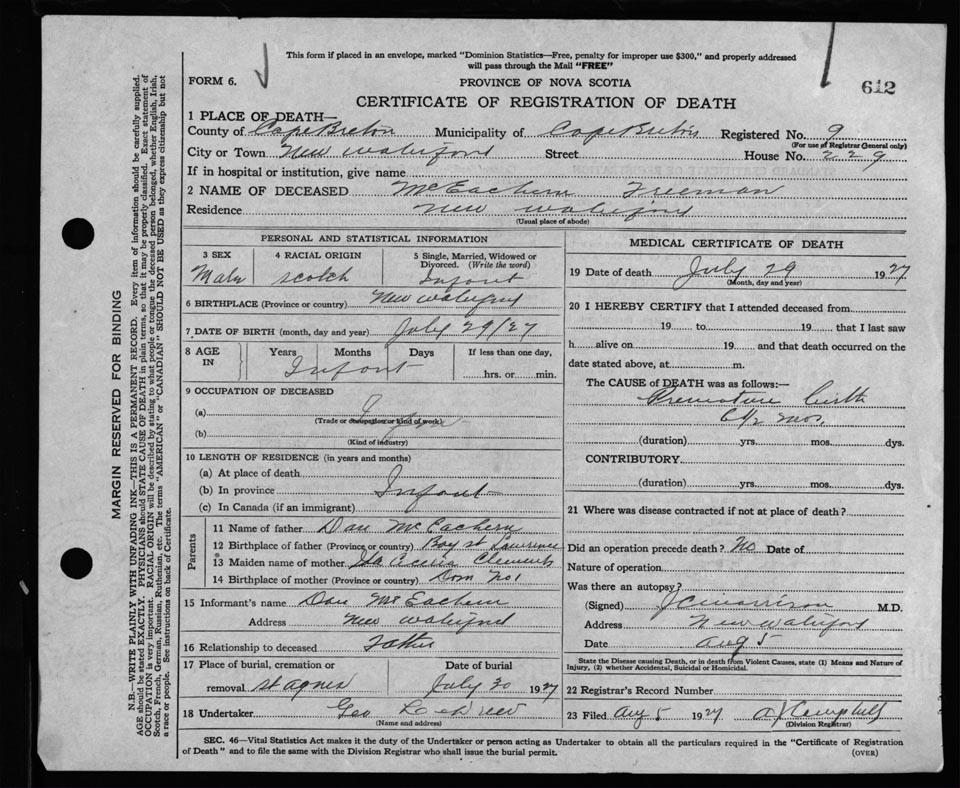 This form if placed in an envelope, marked "Dominion Statistics—Free, penalty for improper use $300," and properly addressed
will pass through the Mail "FREE"
FORM 6.
PROVINCE OF NOVA SCOTIA
612
CERTIFICATE OF REGISTRATION OF DEATH
1 PLACE OF DEATH—
County of Cape Breton Municipality of Cape Breton Registered No. 9
(For use of Registrar General only)
City or Town New Waterford Street House No. 229
If in hospital or institution, give name
2 NAME OF DECEASED McEachern Freeman
Residence New Waterford
(Usual place of abode)
PERSONAL AND STATISTICAL INFORMATION
3 SEX 4 RACIAL ORIGIN 5 Single, Married, Widowed or Divorced. (Write the word)
Male Scotch Infant
6 BIRTHPLACE (Province or country) New Waterford
7 DATE OF BIRTH (month, day and year) July 29/27
8 AGE IN Years Months Days If less than one day,
Infant hrs. or min.
9 OCCUPATION OF DECEASED
(a)
(Trade or occupation or kind of work)
(b)
(Kind of industry)
10 LENGTH OF RESIDENCE (in years and months)
(a) At place of death
(b) In province Infant
(c) In Canada (if an immigrant)
Parents
11 Name of father Dan McEachern
12 Birthplace of father (Province or country) Bay St Lawrence
13 Maiden name of mother Ida Clements
14 Birthplace of mother (Province or country) Dom No 1
15 Informant's name Dan McEachern
Address New Waterford
16 Relationship to deceased Father
17 Place of burial, cremation or Date of burial
removal St Agnes July 30 1927
18 Undertaker Geo
MEDICAL CERTIFICATE OF DEATH
19 Date of death July 29 1927
(Month, day and year)
20 I HEREBY CERTIFY that I attended deceased from
19 to 19 that I last saw
h alive on 19 and that death occurred on the
date stated above, at m.
The CAUSE of DEATH was as follows:—
Premature birth
6½ mos.
(duration) yrs. mos. dys.
CONTRIBUTORY
(duration) yrs. mos. dys.
21 Where was disease contracted if not at place of death?
Did an operation precede death? No Date of
Nature of operation
Was there an autopsy?
(Signed) J C Morrison M.D.
Address New Waterford
Date Aug 5
State the Disease causing Death, or in death from Violent Causes, state (1) Means and Nature of
Injury, (2) whether Accidental, Suicidal or Homicidal.
22 Registrar's Record Number
23 Filed Aug 5 1927 Campbell
(Division Registrar)
SEC. 46—Vital Statistics Act makes it the duty of the Undertaker or person acting as Undertaker to obtain all the particulars required in the "Certificate of Registration
of Death" and to file the same with the Division Registrar who shall issue the burial permit.
(OVER)
MARGIN RESERVED FOR BINDING
N.B.—WRITE PLAINLY WITH UNFADING INK—THIS IS A PERMANENT RECORD. Every item of information should be carefully supplied.
AGE should be stated EXACTLY. PHYSICIANS should STATE CAUSE OF DEATH in plain terms, so that it may be properly classified. Exact statement of
OCCUPATION is very important. RACIAL ORIGIN will be described by stating to what people or tongue the deceased person belonged, whether English, Irish,
Scotch, French, German, Russian, Ruthenian, etc. The terms "AMERICAN" or "CANADIAN" SHOULD NOT BE USED as they express citizenship but not
a race or people. See instructions on back of Certificate.